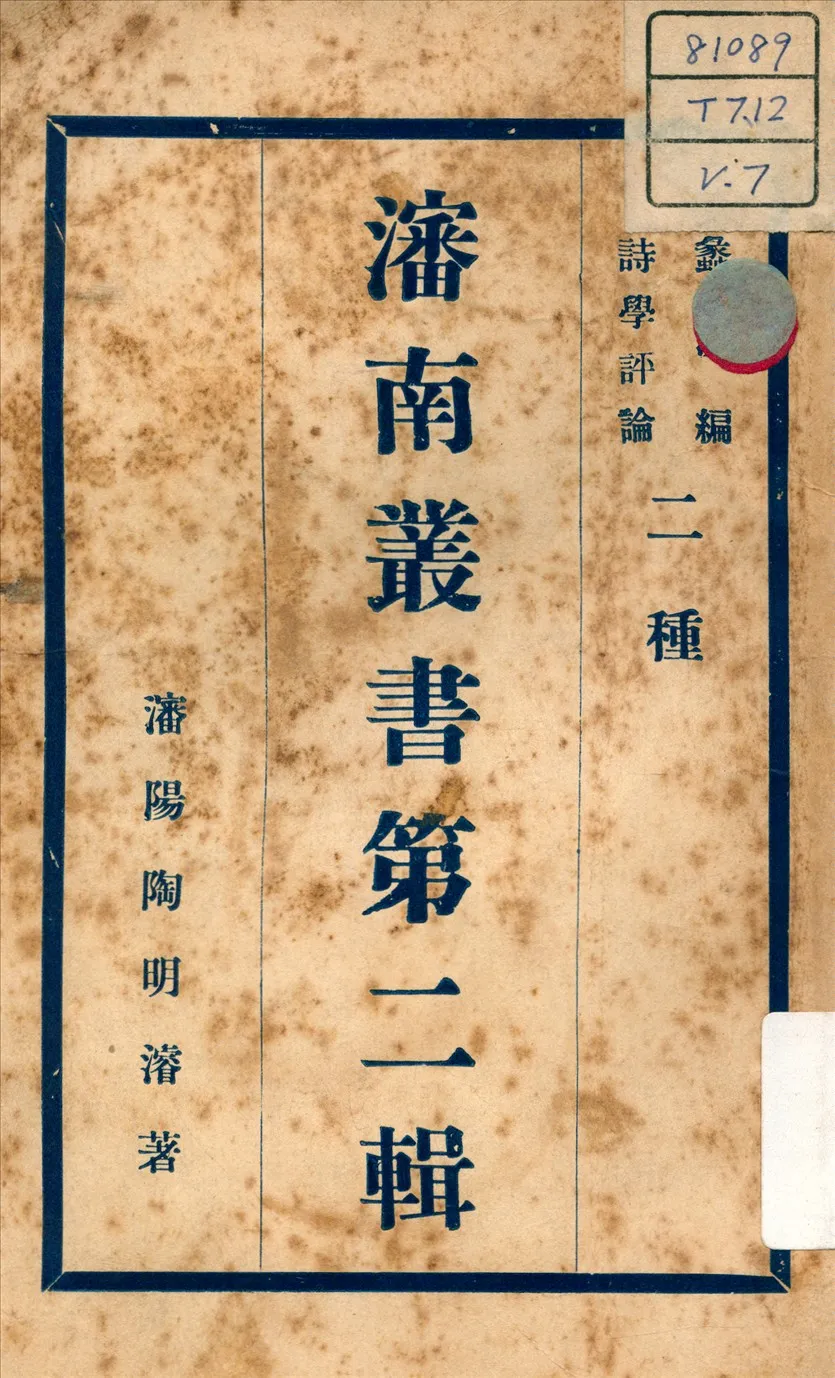 81089
T7.12
V.7
編
詩學評論
二種
瀋南叢書第二輯
瀋陽陶明濬著